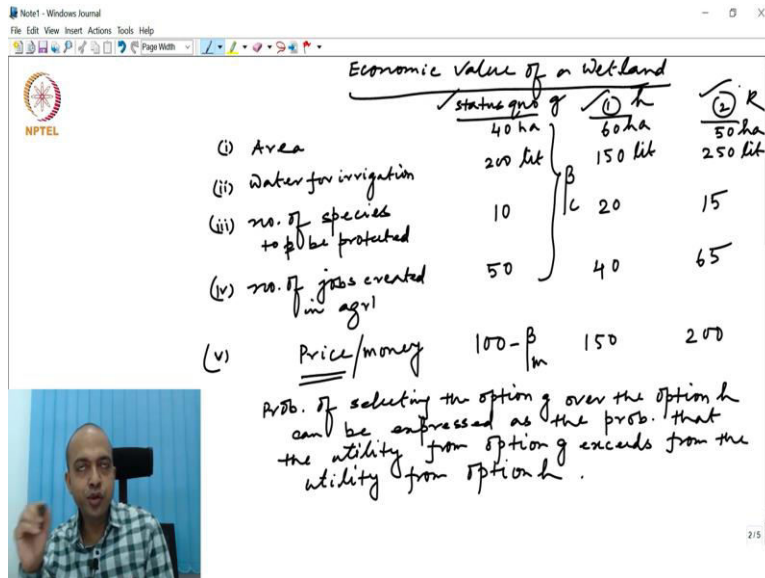 Note1 - Windows Journal
File Edit View Insert Actions Tools Help
Page Width
NPTEL
Economic Value of a Wetland
status quo g ① h ② R
(i) Area 40 ha 60 ha 50 ha
(ii) Water for irrigation 200 lit 150 lit 250 lit
(iii) no. of species 10 βc 20 15
to be protected
(iv) no. of jobs created 50 40 65
in agrl
(v) Price/money 100 - βm 150 200
Prob. of selecting the option g over the option h
can be expressed as the prob. that
the utility from option g exceeds from the
utility from option h .
2/5